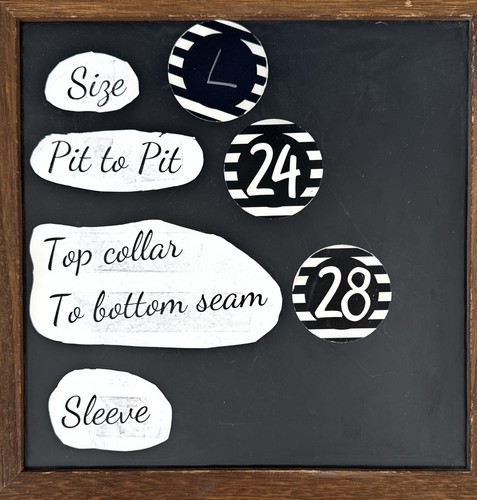 Size L
Pit to Pit 24
Top collar
To bottom seam 28
Sleeve